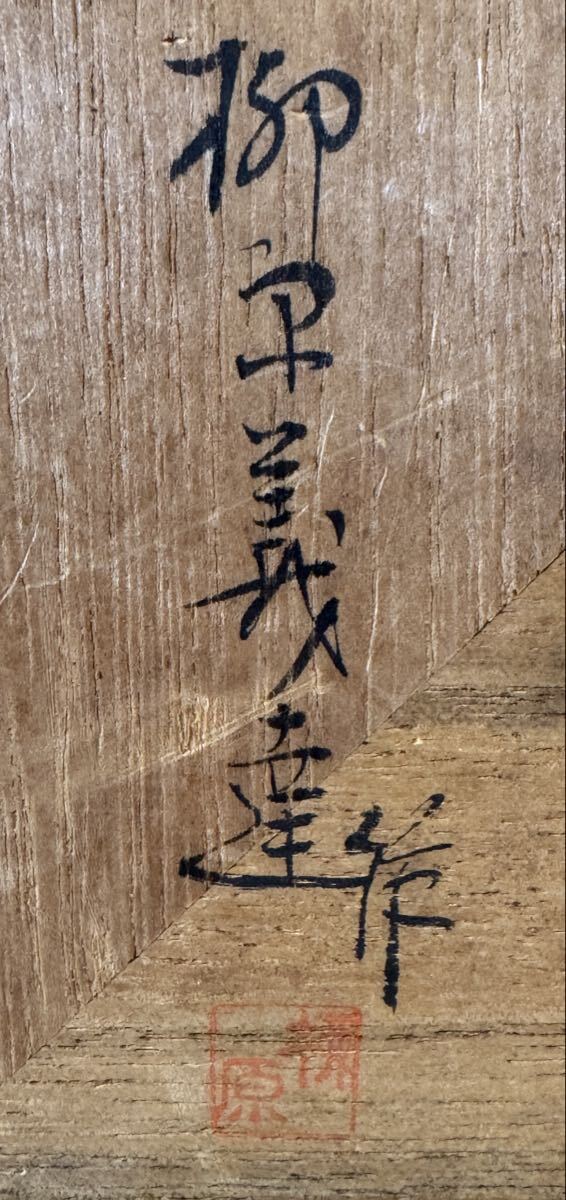 柳原義達
作
原